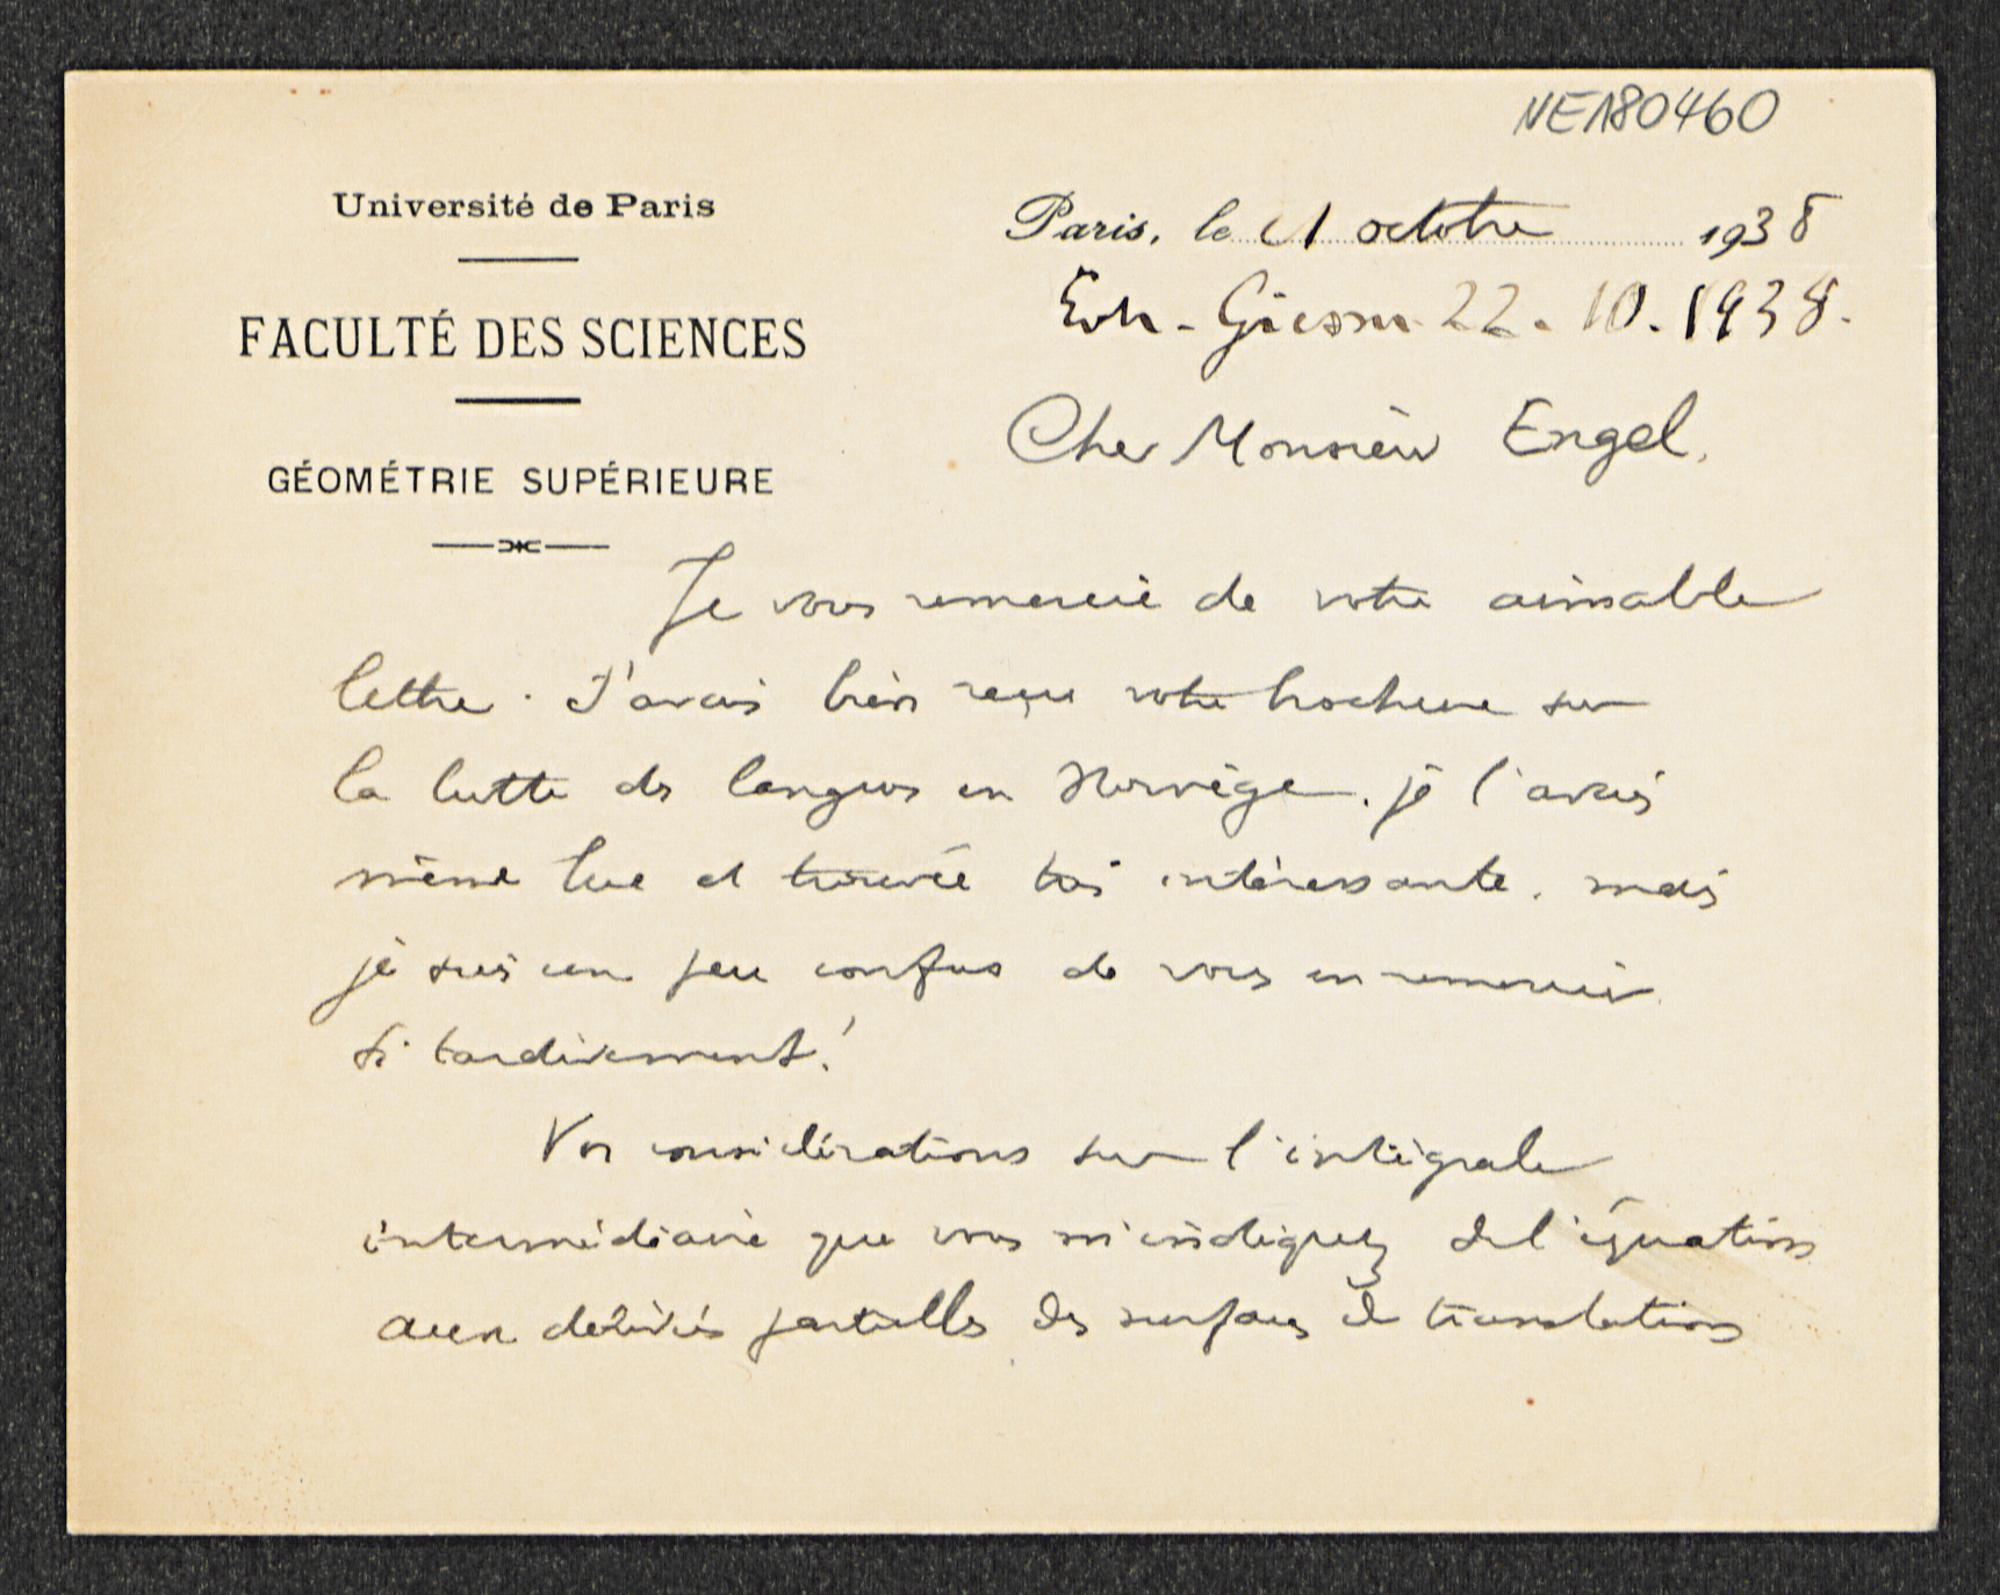 NE180460
Université de Paris
FACULTÉ DES SCIENCES
GÉOMÉTRIE SUPÉRIEURE
Paris, le 1 octobre 1938
Giessen 22. 10. 1938.
Cher Monsieur Engel.
Je vous remercie de votre aimable
lettre. J'avais bien reçu votre brochure sur
la lutte des langues en Norvège. je l'avais
même lue et trouvée très intéressante. mais
je suis un peu confus de vous en remercier
si tardivement!
Vos considérations sur l'intégrale
intermédiaire que vous m'indiquez de l'équation
aux dérivées partielles des surfaces de translation